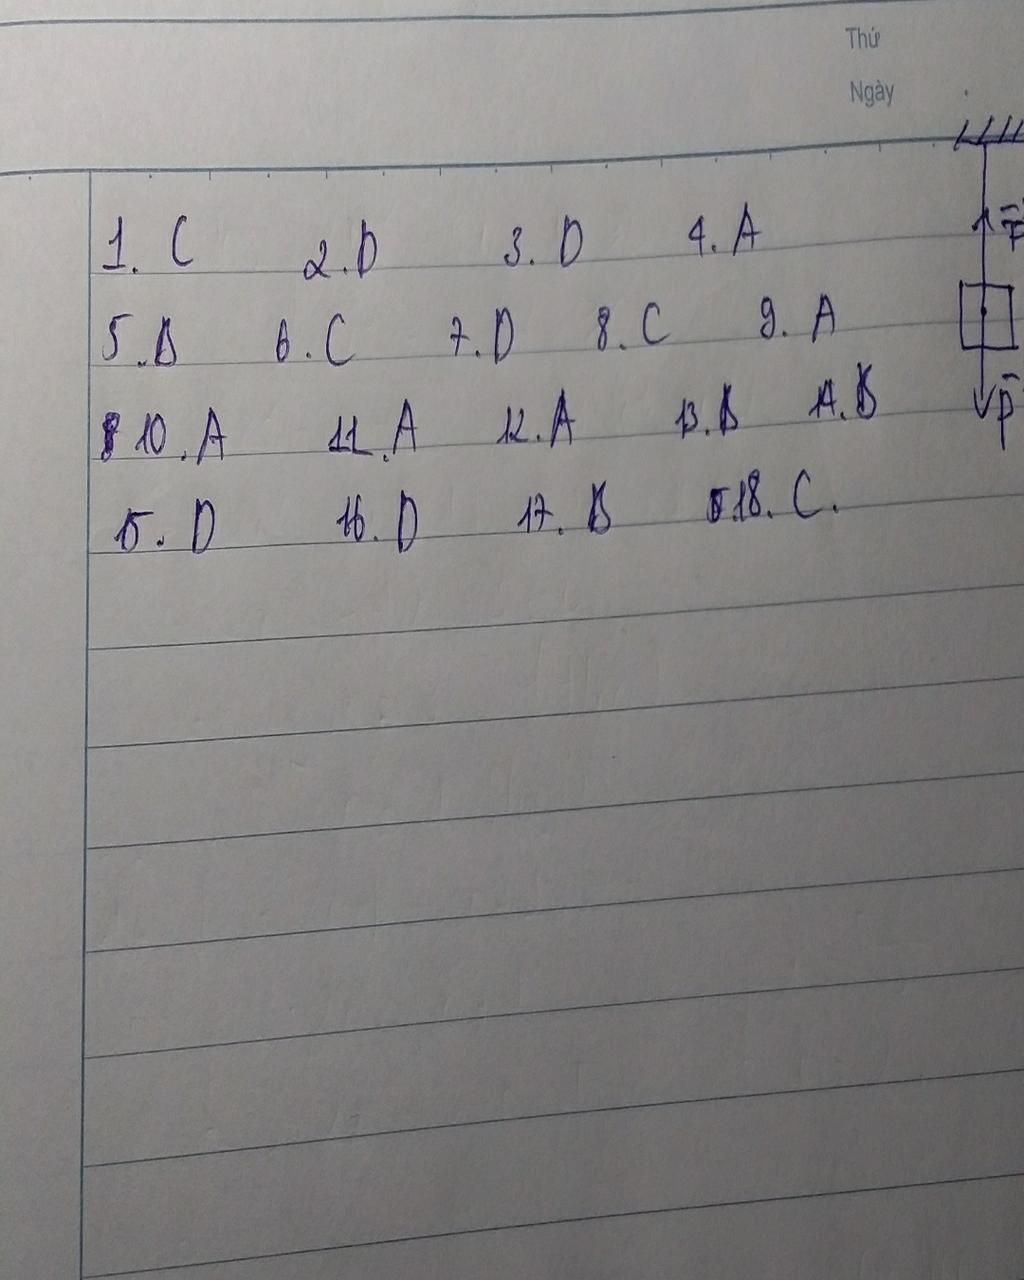 Thứ
Ngày
1. C 2. D 3. D 4. A
5. B 6. C 7. D 8. C 9. A
10. A 11. A 12. A 13. B 14. B
15. D 16. D 17. B 18. C.
T
P